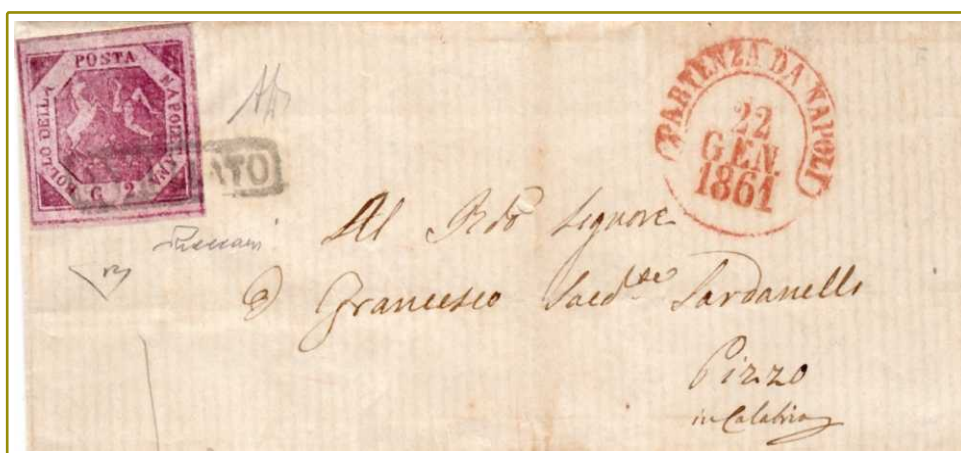 POSTA
NAPOLETANA
BOLLO DELLA
G 2
ATO
PARTENZA DA NAPOLI
22
GEN.
1861
Al Rdo Signore
D Francesco Sacdte Sardanelli
Pizzo
in Calabria